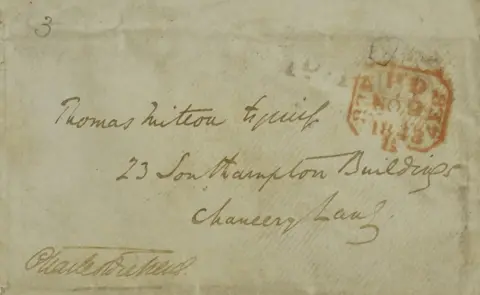 3
PAID
NO 2
1843
Thomas Mitton Esquire
23 Southampton Buildings
Chancery Lane
Charles Dickens